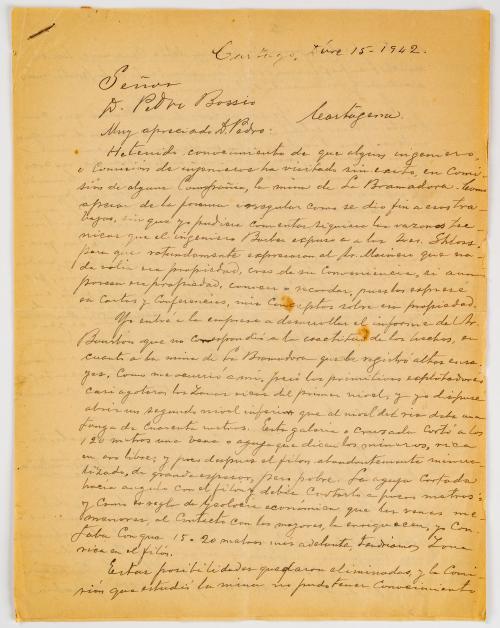 Cartago, Dire 15-1942.
Señor
D. Pedro Bossio
Cartagena.
Muy apreciado D. Pedro:
He tenido conocimiento de que algun ingeniero
o Comision de ingenieros ha visitado sin exito, en Comi-
sión de alguna Compañia, la mina de La Bramadora. Como
apesar de la forma irregular como se dio fin a esos tra-
bajos, sin que yo pudiera comentar siquiera las razones tec-
nicas que el ingeniero expuso a los Sres. Schloss,
para que rotundamente expresaron al Dr. Mainero que na-
da valia esa propiedad, creo de su conveniencia, si aun
poseen esa propiedad, conocer o recordar, pues los expresé
en Cartas y Conferencias, mis conceptos sobre esa propiedad.
Yo entré a la empresa a desarrollar el informe del Dr.
que no correspondió a la exactitud de los hechos, en
cuanto a la mina de La Bramadora que le registró altos ensa-
yes, como me ocurrió a mi, pero los primitivos explotadores
casi agotaron las zonas ricas del primer nivel, y yo dispuse
abrir un segundo nivel inferior que al nivel del rio daba una
longa de cuarenta metros. Esta galeria o cruzada cortó a los
120 metros una vena o aguja que dicen los mineros, rica
en oro libre; y poco despues el filon, abundantemente minera-
lizado, de grande espesor, pero pobre. La aguja cortada
hacia angulo con el filon y debia cortarlo a pocos metros:
y como es regla de geologia economica que las venas me-
nores, al contacto con las mayores, la enriquecen, yo con-
taba con que 15-20 metros mas adelante, tendriamos zona
rica en el filón.
Estas posibilidades quedaron eliminadas, y la Comi-
sión que estudió la mina no pudo tener conocimiento